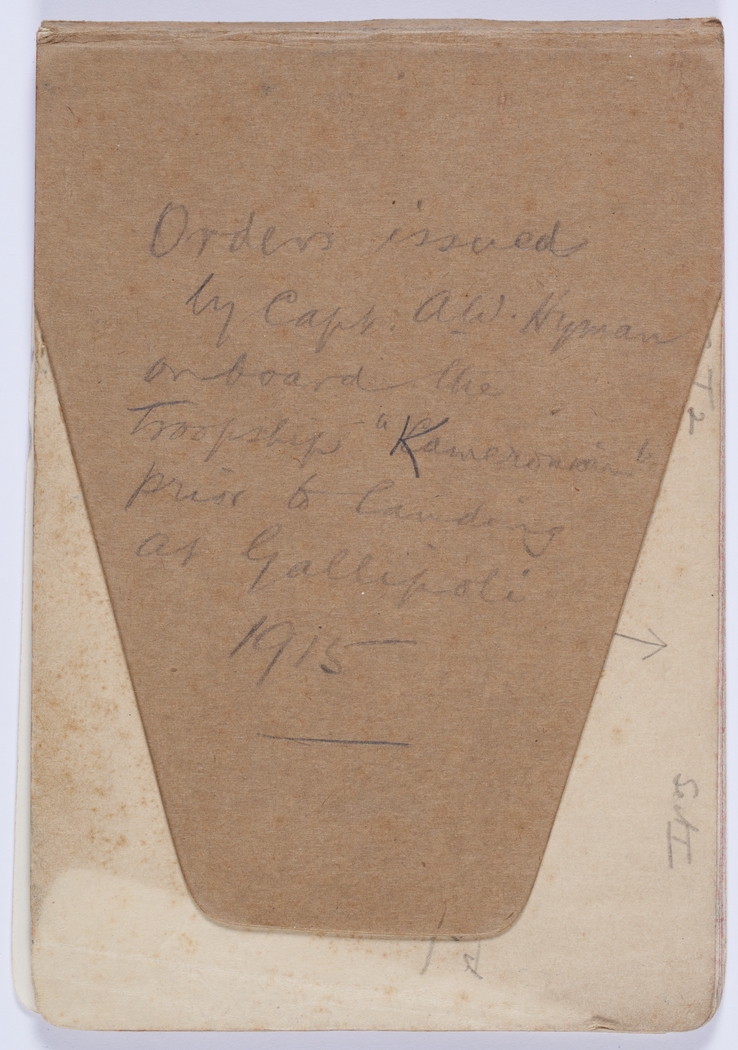 Orders issued
by Capt. A.W. Hyman
on board the
Troopship "Kameronian"
prior to landing
at Gallipoli
1915